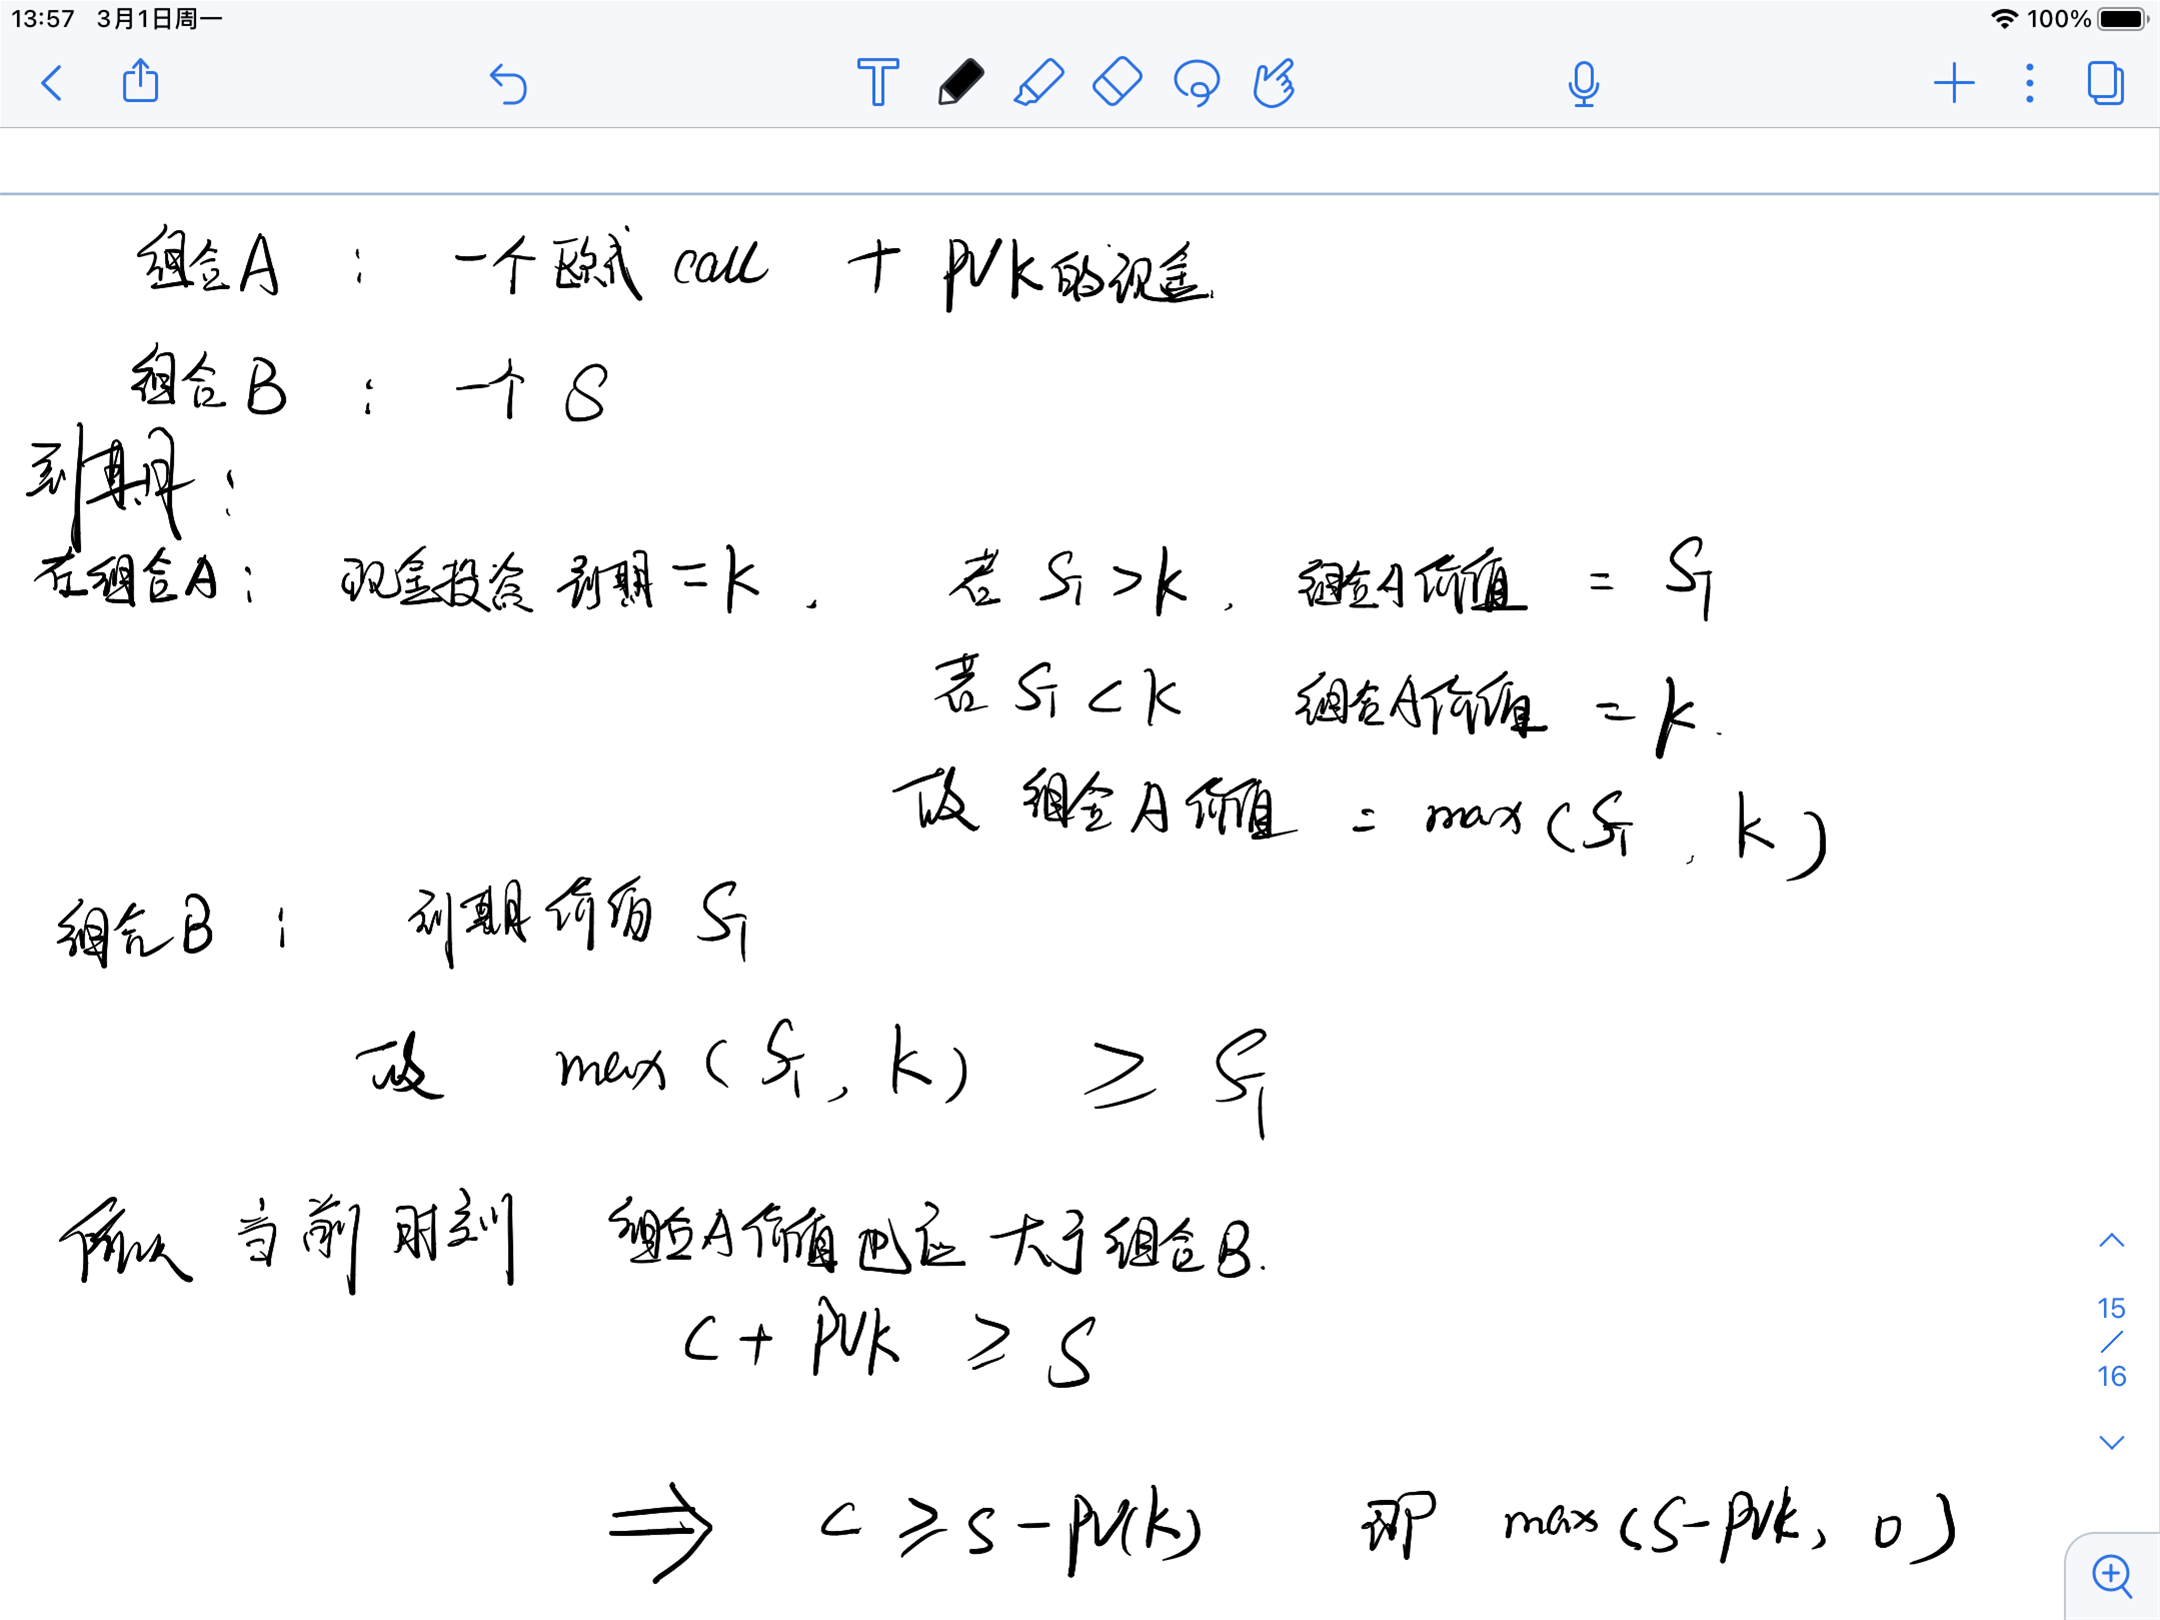 13:57 3月1日周一 100%
组合A : 一个欧式 call + PVK的现金.
组合B : 一个 S
到期:
在组合A: 现金投资 到期=K , 若 S_T >K , 组合A价值 = S_T
若 S_T < K 组合A价值 = K.
故 组合A价值 = max (S_T , K)
组合B : 到期价值 S_T
故 max (S_T , K) ≥ S_T
所以 当前时刻 组合A价值也应大于组合B.
C + PVK ≥ S
⇒ C ≥ S - PV(K) 即 max (S-PVK, 0)
15
/
16